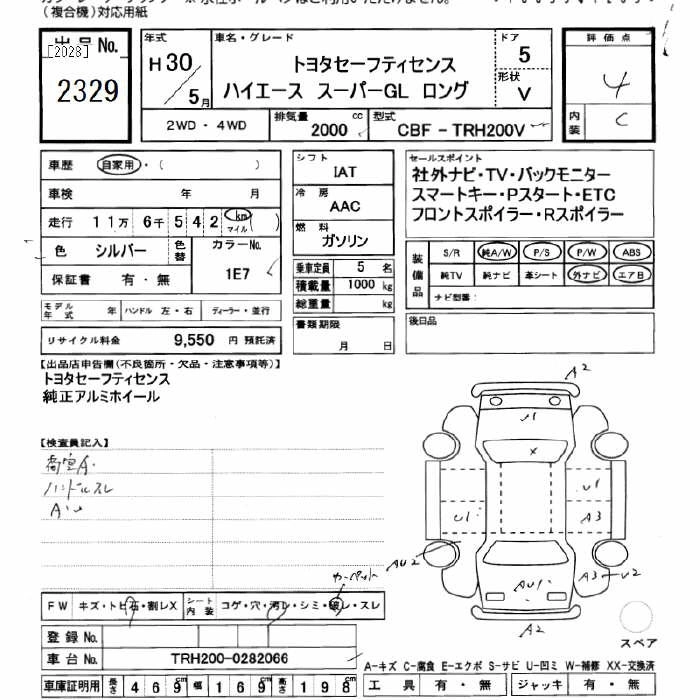 (複合機)対応用紙
出品No.
[2028]
2329
年式 H30/5月
車名・グレード
トヨタセーフティセンス
ハイエース スーパーGL ロング
ドア 5
形状 V
評価点 4
内装 C
2WD・4WD
排気量 2000 cc
型式 CBF-TRH200V
車歴 自家用・( )
車検 年 月
走行 11万 6千 542 km マイル ( )
色 シルバー 色替 カラーNo. 1E7
保証書 有・無
モデル年式 年 ハンドル 左・右 ディーラー・並行
リサイクル料金 9,550 円 預託済
シフト IAT
冷房 AAC
燃料 ガソリン
乗車定員 5 名
積載量 1000 kg
総重量 kg
書類期限
月 日
セールスポイント
社外ナビ・TV・バックモニター
スマートキー・Pスタート・ETC
フロントスポイラー・Rスポイラー
装備品
S/R 純A/W P/S P/W ABS
純TV 純ナビ 革シート 外ナビ エアB
ナビ型番:
後日品
【出品店申告欄(不良箇所・欠品・注意事項等)】
トヨタセーフティセンス
純正アルミホイール
【検査員記入】
荷室A.
ハンドルスレ
A2
U1
X
U1
U1
A3
AU2
AU1
A3 U2
A2
カーペット
FW キズ・トビ石・割レX シート内装 コゲ・穴・汚レ・シミ・破レ・スレ
登録No.
車台No. TRH200-0282066
スペア
A-キズ C-腐食 E-エクボ S-サビ U-凹ミ W-補修 XX-交換済
車庫証明用 長さ 469cm 幅 169cm 高さ 198cm
工具 有・無 ジャッキ 有・無